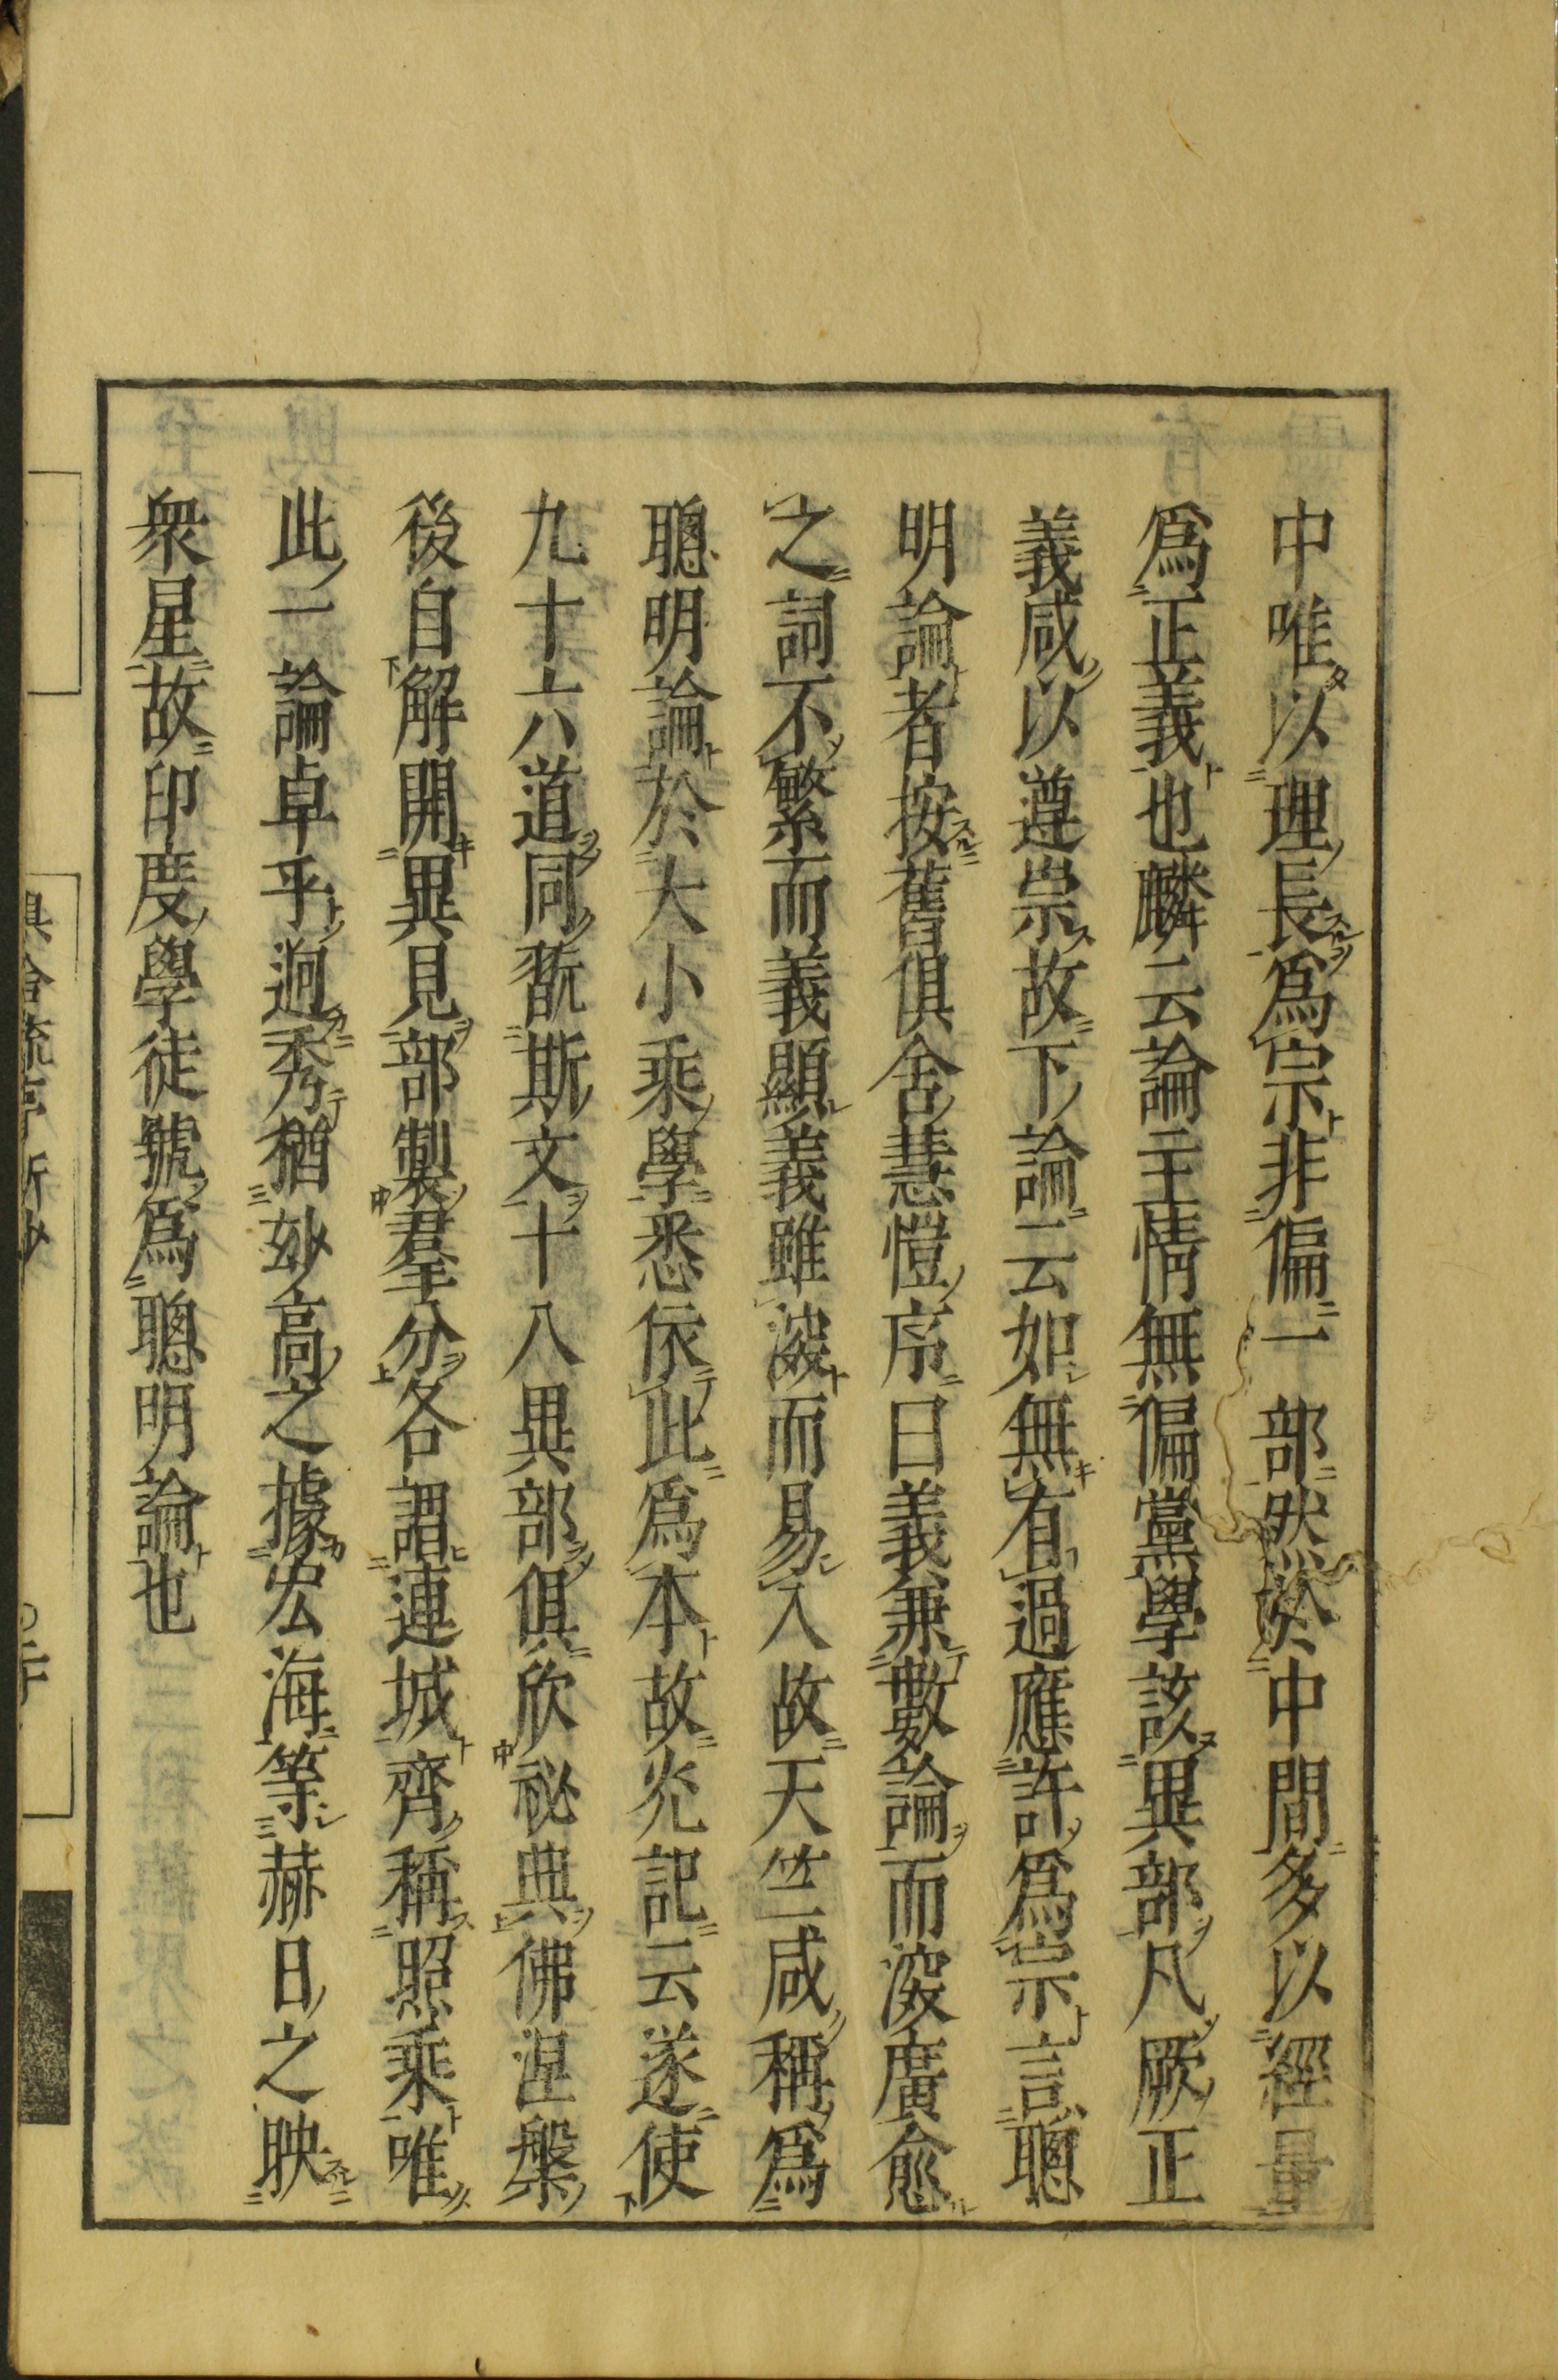 中唯以理長爲宗非偏一部然於中間多以經量
爲正義也麟云論主情無偏黨學該異部凡厥正
義咸以遵崇故下論云如無有過應許爲宗言聰
明論者按舊俱舍慧愷序曰義兼數論而深廣愈
之詞不繁而義顯義雖深而易入故天竺咸稱爲
聰明論於大小乘學悉依此爲本故光記云遂使
九十六道同翫斯文十八異部俱欣祕典佛涅槃
後自解開異見部製羣分各謂連城齊稱照乘唯
此一論卓乎逈秀猶妙高之據宏海等赫日之映
衆星故印度學徒號爲聰明論也